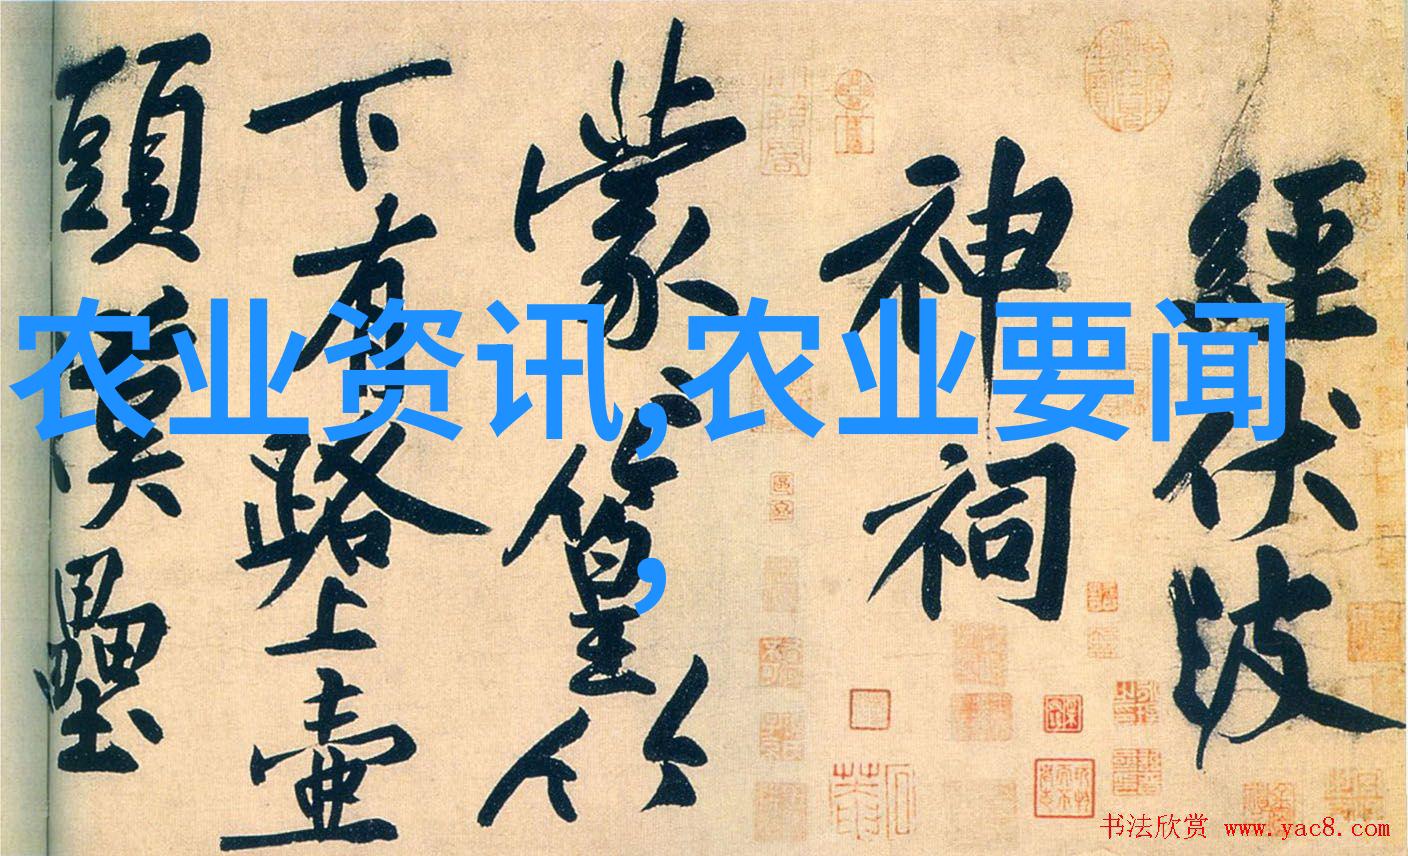 經伏波
神祠
蒙々篁竹
下有路上壺
頭漢壘
农业资讯,农业要闻
,
书法欣赏 www.yac8.com